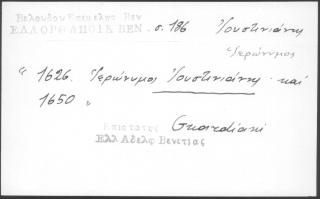 Βελουδου Επιμελητ Βεν
ΕΛΛΟΡΘΑΠΟΙΚ ΒΕΝ. σ. 186 Ἰουστινιάνης
Ἱερώνυμος
"1626. Ἱερώνυμος Ἰουστινιάνης. καί
1650"
Επιστατες Guardiani
Ελλ Αδελφ Βενετιας